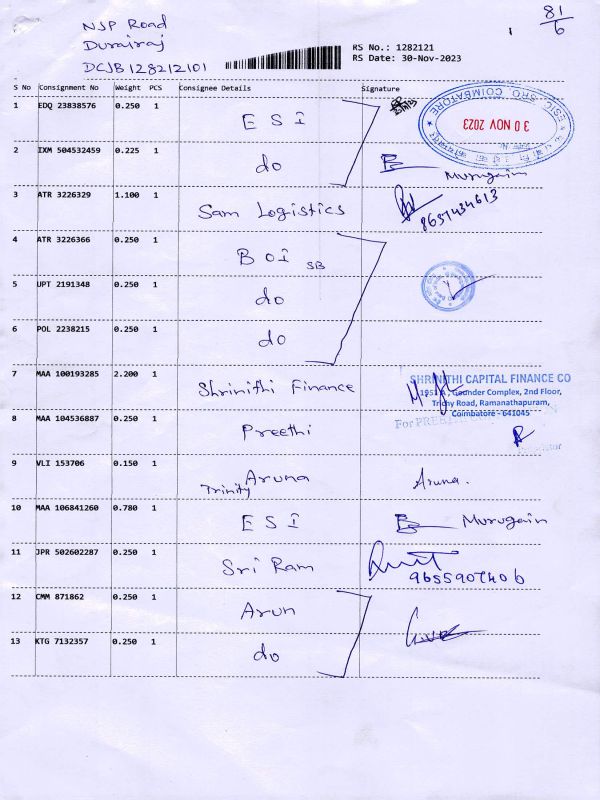 81
6
NSP Road
Durairaj
DCJB128212101
RS No.: 1282121
RS Date: 30-Nov-2023
S No Consignment No Weight PCS Consignee Details Signature
1 EDQ 23838576 0.250 1 ESI
ESIC SRO COIMBATORE
30 NOV 2023
2 IXM 504532459 0.225 1 do Murugain
3 ATR 3226329 1.100 1 Sam Logistics 8657434613
4 ATR 3226366 0.250 1 BOI SB
5 UPT 2191348 0.250 1 do
6 POL 2238215 0.250 1 do
7 MAA 100193285 2.200 1 Shrinithi Finance
SHRINITHI CAPITAL FINANCE CO
Gounder Complex, 2nd Floor,
Trichy Road, Ramanathapuram,
Coimbatore - 641045
8 MAA 104536887 0.250 1 Preethi
For
9 VLI 153706 0.150 1 Aruna Aruna.
Trinity
10 MAA 106841260 0.780 1 ESI Murugain
11 JPR 502602287 0.250 1 Sri Ram
9655907406
12 CMM 871862 0.250 1 Arun
13 KTG 7132357 0.250 1 do